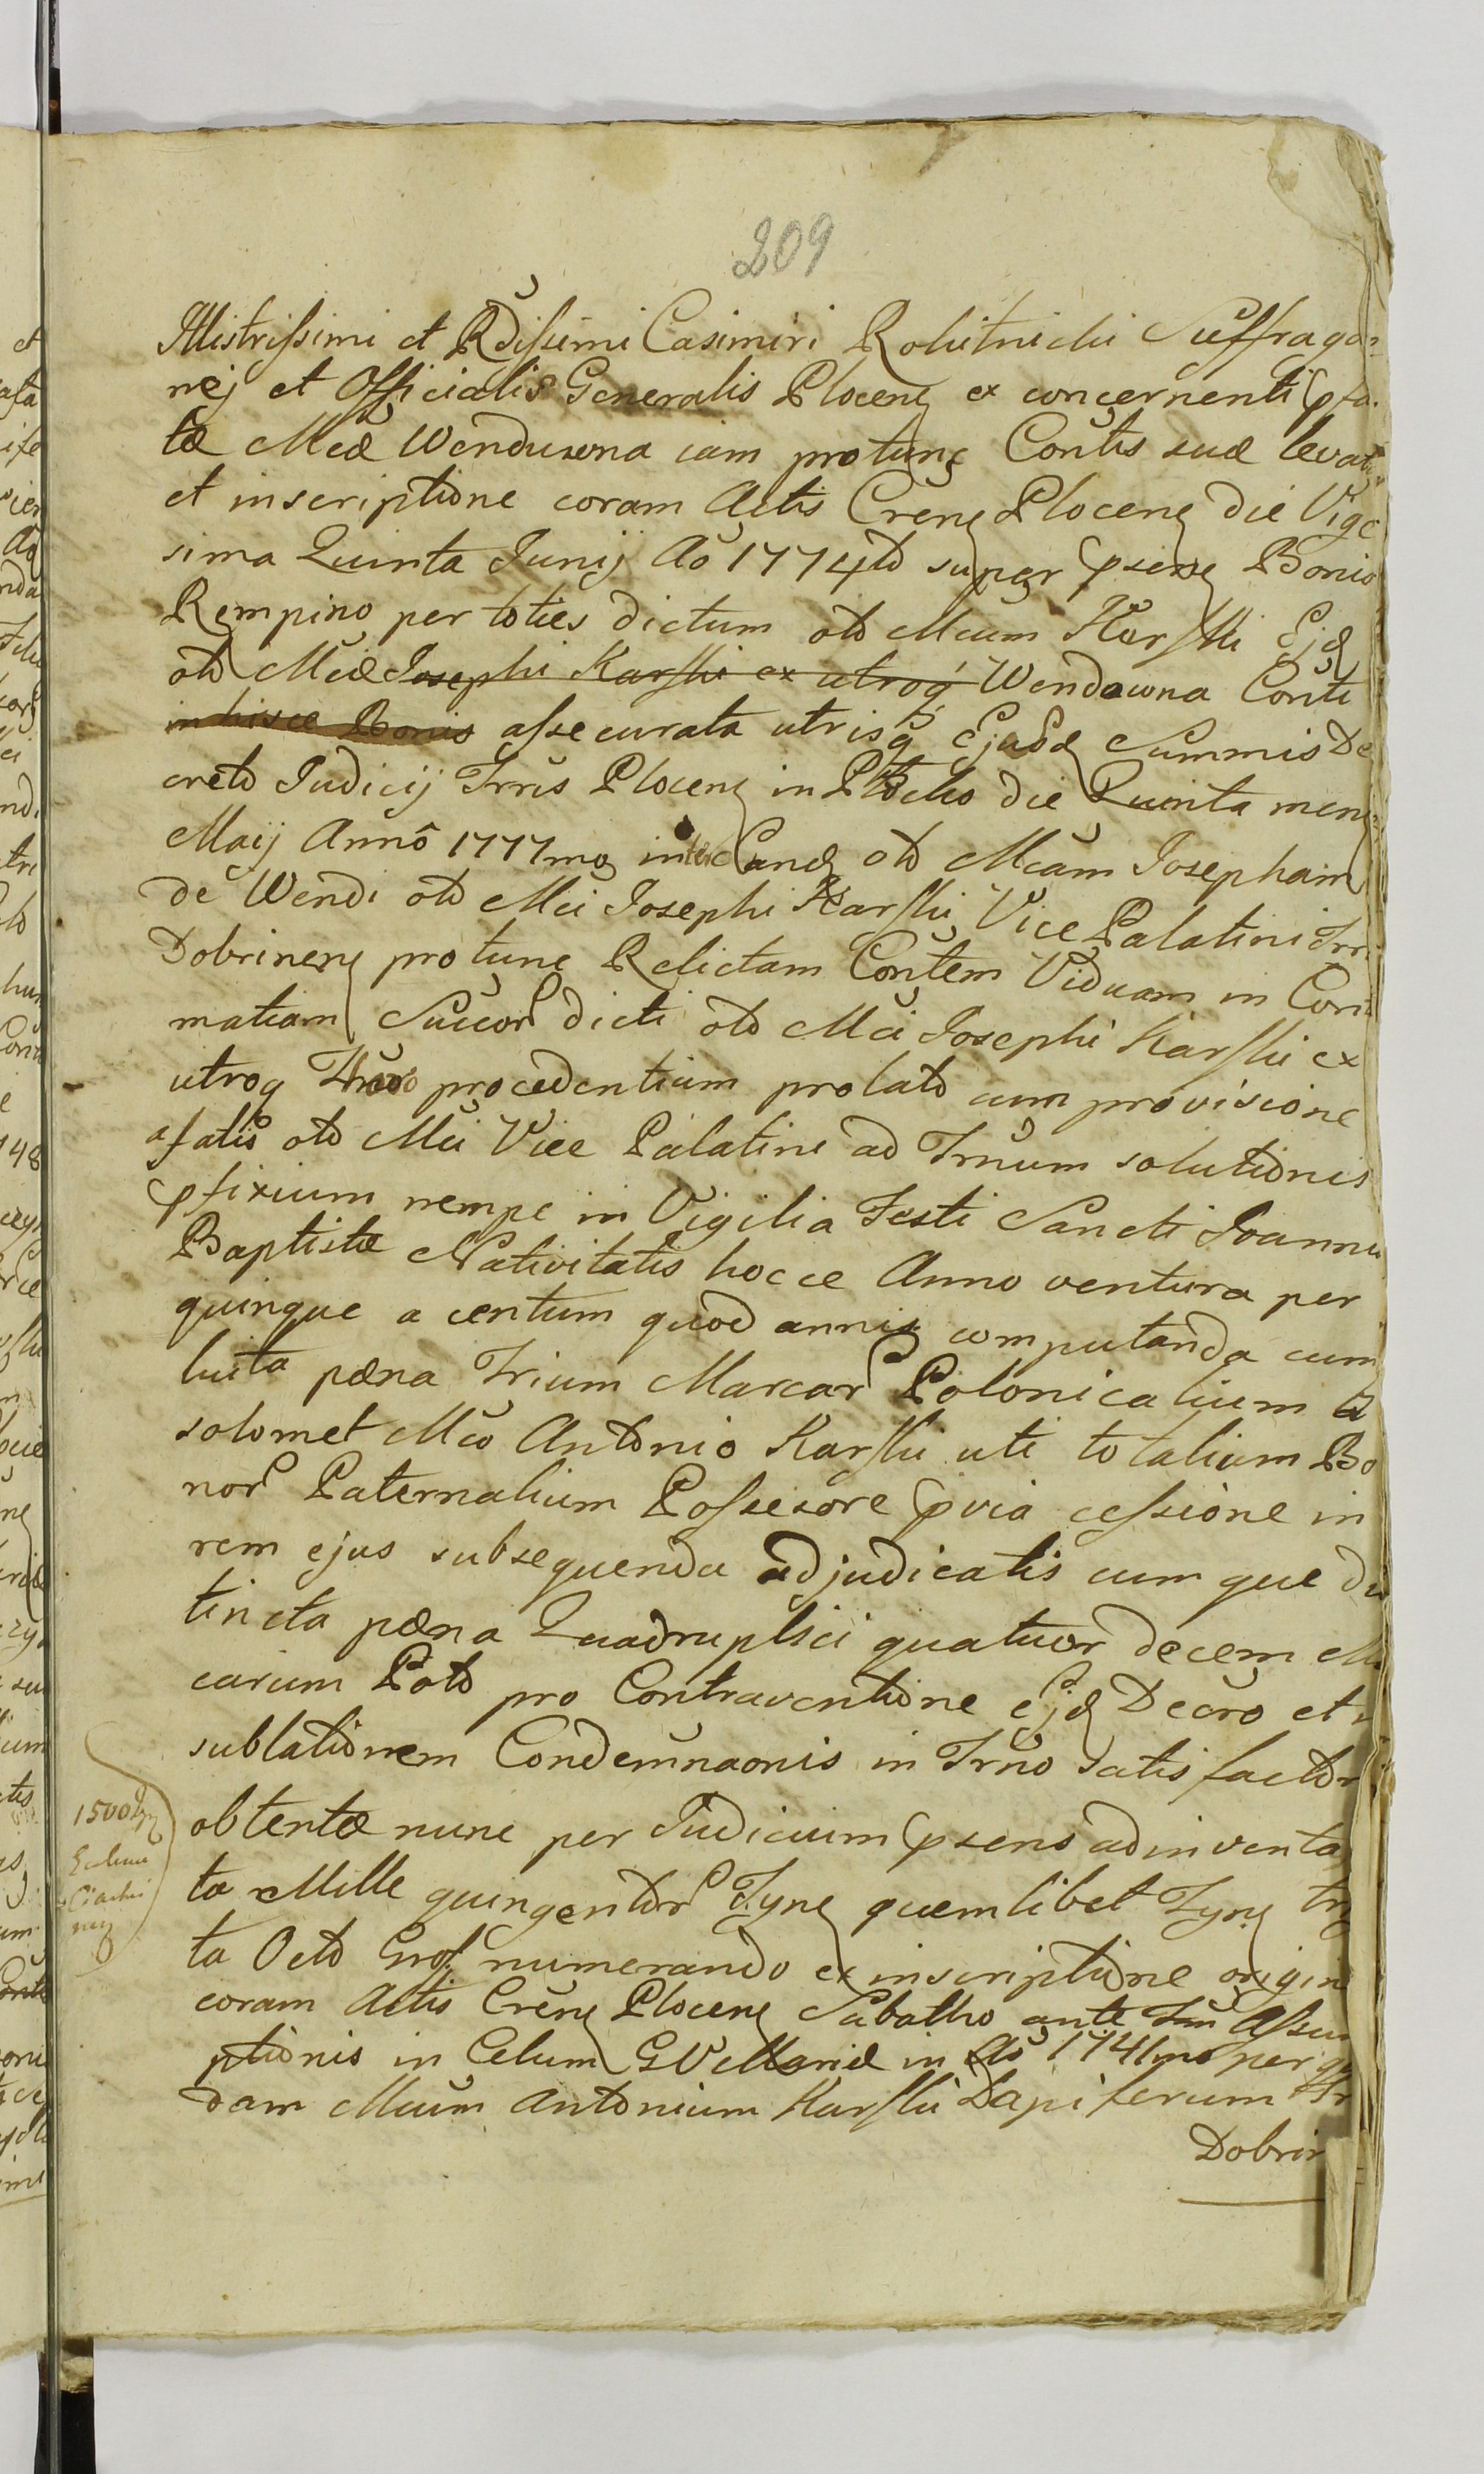 209
Illistrissimi et Rdissimi Casimiri Rokitnicki Suffraga
nej et Officialis Generalis Plocens ex concernenti pfa
tæ Mcæ Wenduwna iam protunc Contis suæ levat
et inscriptione coram Actis Crens Plocens die Vige
sima Quinta Junij Ao 1774to super psens Bonis
Rempino per toties dictum olo Mcum Karski Ejd
olo Mcæ Josephi Karski ex utroq Wendowna Conti
in hisce Bonis assecurata utrisq Ejusd Summis De
creto Judicij Trris Plocens in Plocko die Quinta mens
Maij Anno 1777mo inter eand olo Mcam Josepham
de Wendi olo Mci Josephi Karski Vice Palatini Trr
Dobrinens protunc Relictam Contem Viduam in Con
matiam Succor dicti olo Mci Josephi Karski ex
utroq Thoro procedentium prolato cum provisione
afatis olo Mci Vice Palatini ad Trnum solutionis
pfixium nempe in Vigilia Festi Sancti Joannis
Baptistæ Nativitatis hocce Anno ventura per
quinque a centum quod annis computanda cum
luita pæna Trium Marcar Polonicalium a
solomet Mco Antonio Karski uti totalium Bo
nor Paternalium Possesore pvia cessione in
rem ejus subsequenda adjudicatis cum que di
tincta pæna Quadruplici quatuor decem M
carum Polo pro Contraventione ejd Decro et
sublationem Condemnaonis in Trno satisfacto
obtentæ nunc per Judicium psens adinventa
ta Mille quingentor Tyns quemlibet Tyns tr
ta Octo Gros numerando ex inscriptione origin
coram Actis Crens Plocens Sabatho ante Fm Assu
mptionis in Celum GV Mariæ in Ao 1741mo per q
dam Mcum Antonium Karski Dapiferum
Dobrin
1500